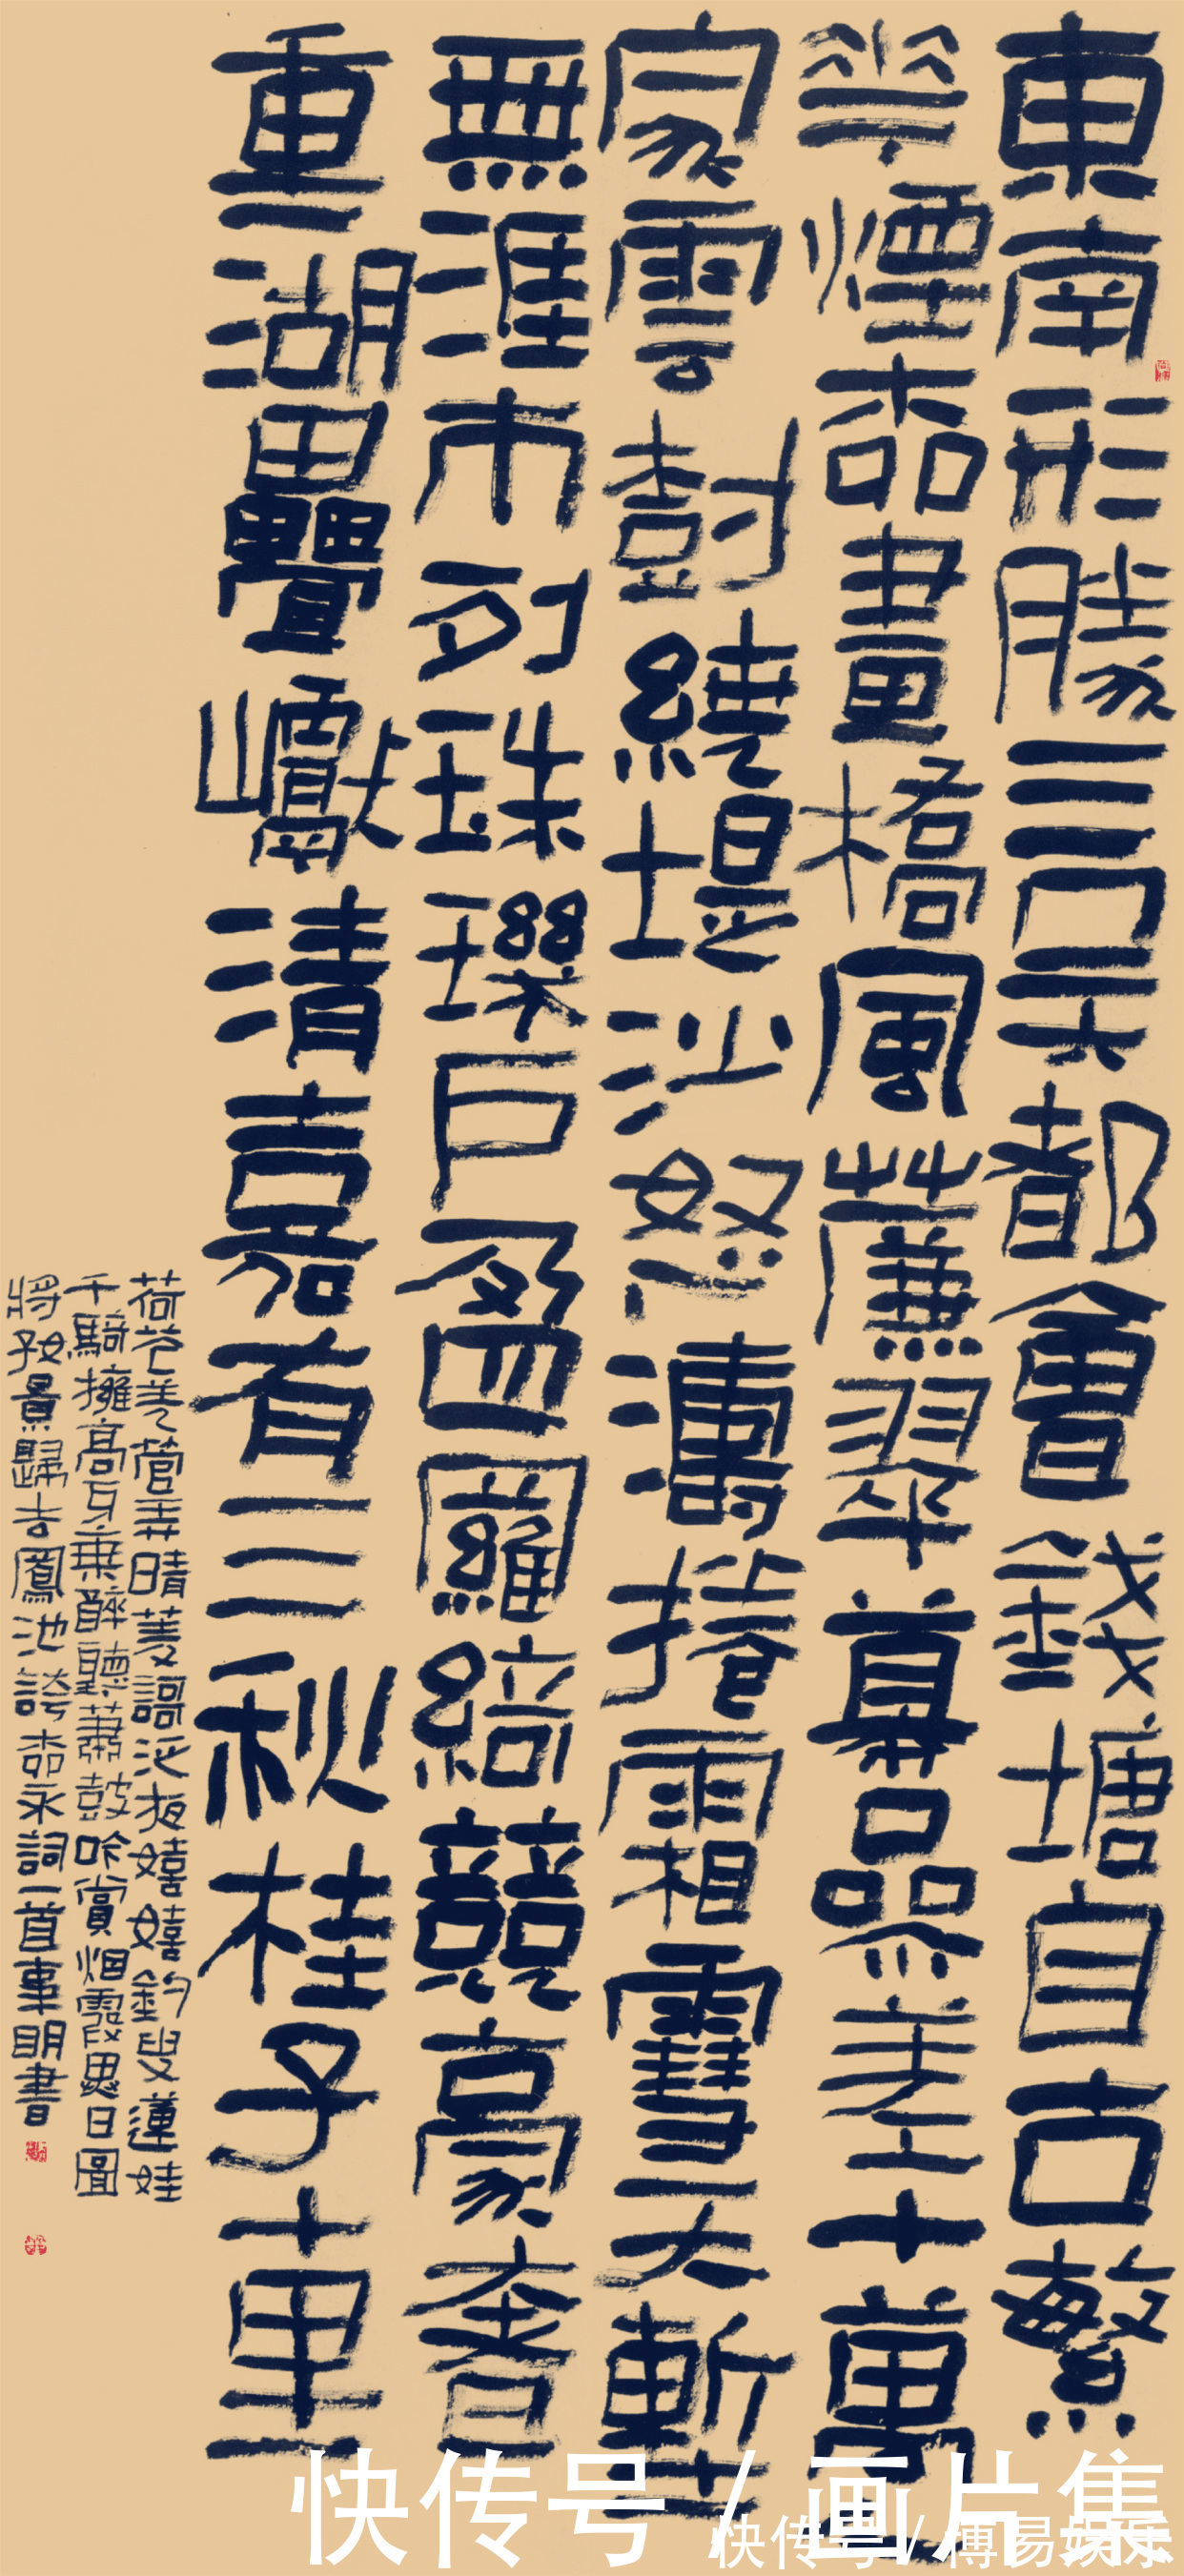 東南形勝三吳都會錢塘自古繁
華煙桺畫橋風簾翠幕參差十萬
家雲樹繞堤沙怒濤捲霜雪天塹
無涯市列珠璣戶盈羅綺競豪奢
重湖疊巘清嘉有三秋桂子十里
荷花羌管弄晴菱謌泛夜嬉嬉釣叟蓮娃
千騎擁高牙乘醉聽簫鼓吟賞烟霞異日圖
將好景歸去鳳池誇桺永詞一首事明書
快传号 / 画片集
快传号 / 博易娱乐